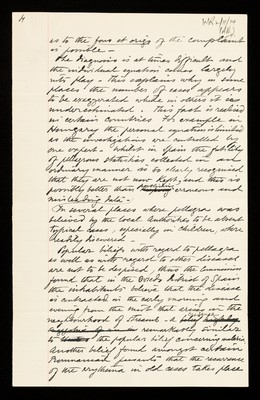 4
as to the fons et origo of the complaint
is possible –
The diagnosis is at times difficult and
the individual equation comes largely
into play – This explains why in some
places the number of cases appears
to be exaggerated while in others it is
underestimated – This fact is noticed
in certain countries For example in
Hungary the personal equation is limited
as the investigations are controlled by
one expert – Whilst in Spain the futility
of pellagrous statistics collected in an
ordinary manner is so clearly recognised
that they are not now kept, and this is
possibly better than erroneous and
misleading data –
In several places where pellagra was
believed by the local Authorities to be absent
typical cases, especially in children, were
readily discovered –
Popular beliefs with regard to pellagra
as well as with regard to other diseases
are not to be despised, thus the Commission
found that in the Oviedo District of Spain
the inhabitants believe that the disease
is contracted in the early morning and
evening from the mist that arises in the
neighbourhood of streams – a
remarkably similar
to the popular belief concerning malaria
Another belief found amongst certain
Roumanian peasants that the recurrence
of the erythema in old cases takes place